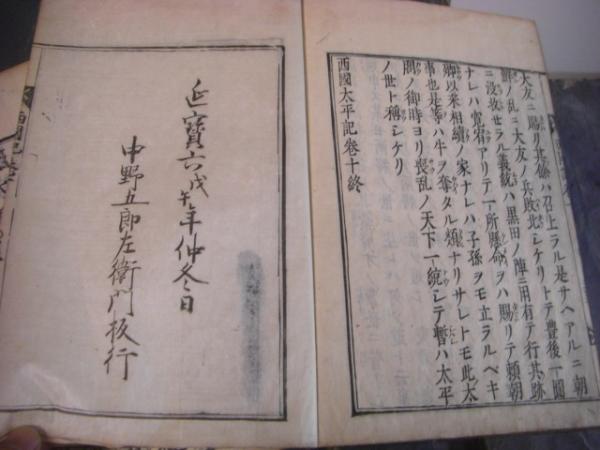 大友ニ賜リ其餘ハ召上ラル是サヘアルニ朝
鮮ノ乱ニ大友ノ兵敗北シケリトテ豊後一國
ニ没收セラル義統ハ黒田ノ陣ニ用有テ行其跡
ナレハ寛宥アリテ一所懸命ヲハ賜リテ頼朝
卿以来相續ノ家ナレハ子孫ヲモ立ラルベキ
事也是等ハ牛ヲ奪タル類ナリサレトモ此太
閤ノ御時ヨリ喪乱ノ天下一統シテ暫ハ太平
ノ世ト稱シケリ
西國太平記巻十終
延寶六戊午年仲冬日
中野五郎左衛門板行